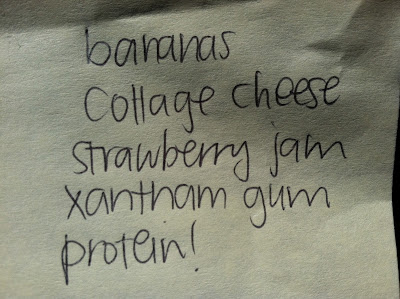 bananas
Cottage cheese
strawberry jam
xantham gum
protein!